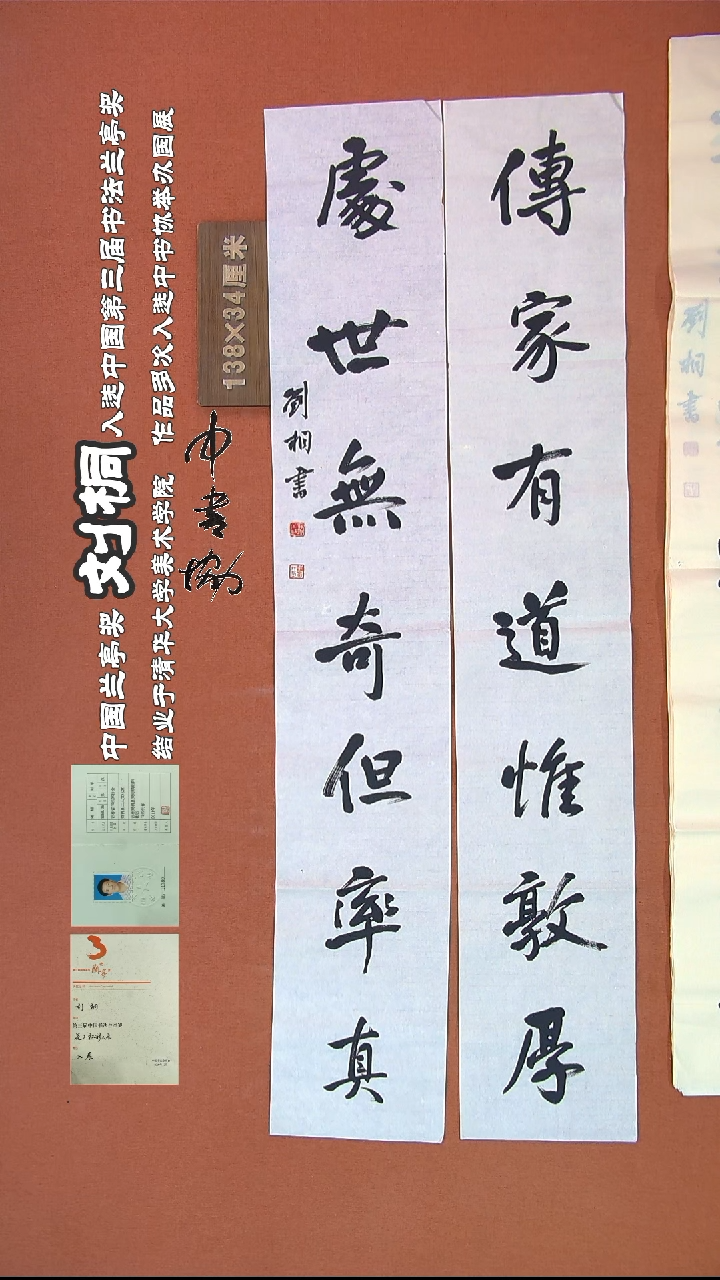 傳家有道惟敦厚
處世無奇但率真
劉桐書
138×34厘米
中国兰亭奖 刘桐 入选中国第三届书法兰亭奖
结业于清华大学美术学院 作品多次入选中书协举办国展
中书协
劉桐書